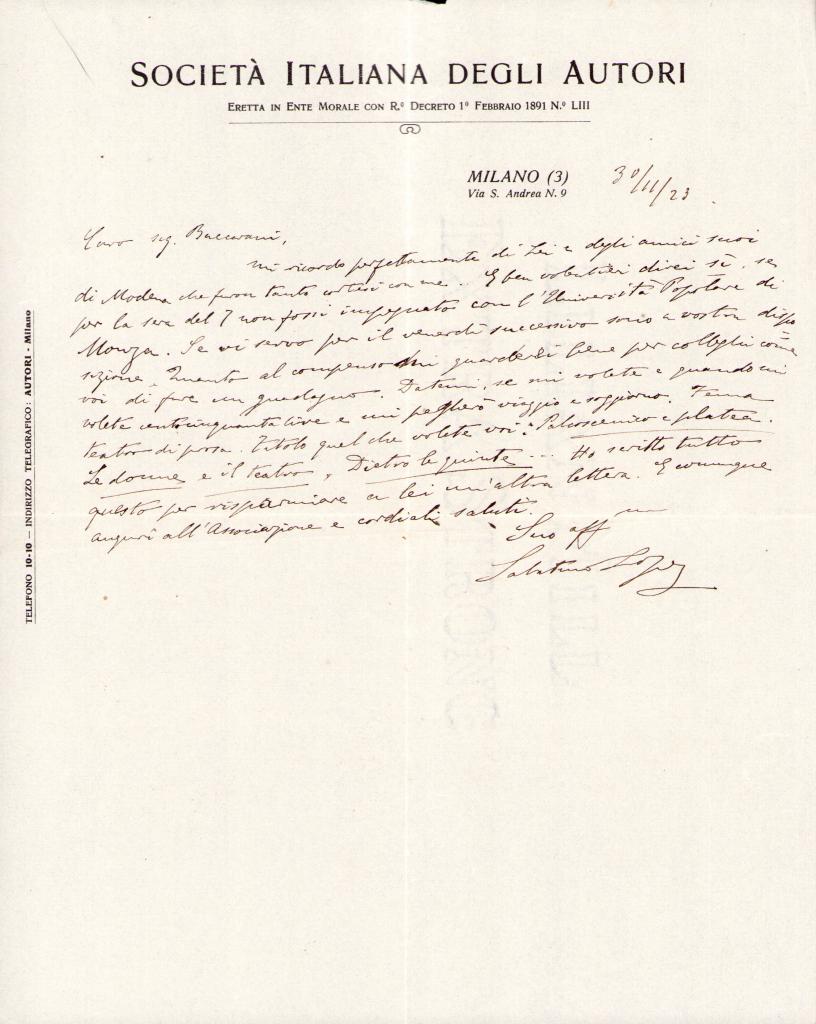 SOCIETÀ ITALIANA DEGLI AUTORI
ERETTA IN ENTE MORALE CON R.º DECRETO 1º FEBBRAIO 1891 N.º LIII
MILANO (3)
Via S. Andrea N. 9
30/11/23
Caro sig. Baccarani,
mi ricordo perfettamente di Lei e degli amici suoi
di Modena che furon tanto cortesi con me. E ben volentieri direi sì, se
per la sera del 7 non fossi impegnato con l'Università Popolare di
Monza. Se vi servo per il venerdì successivo sono a vostra dispo
sizione. Quanto al compenso mi guarderei bene per colleghi come
voi di fare un guadagno. Datemi, se mi volete e quando mi
volete centocinquanta lire e mi pagherò viaggio e soggiorno. Tema
teatro di prosa. Titolo quel che volete voi: Palcoscenico e platea.
Le donne e il teatro, Dietro le quinte... Ho scritto tutto
questo per risparmiare a lei un'altra lettera. E comunque
auguri all'Associazione e cordiali saluti.
Suo aff mo
Sabatino Lopez
TELEFONO 10-10 — INDIRIZZO TELEGRAFICO: AUTORI - Milano